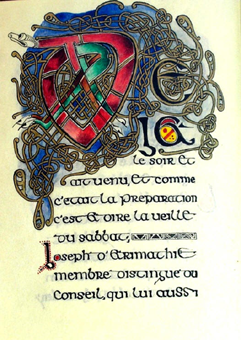 DE
JA
le soir et
ait venu, et comme
c'etait la preparation
c'est a dire la veille
du sabbat,
Joseph d'Arimathie
membre distingue du
Conseil, qui lui aussi